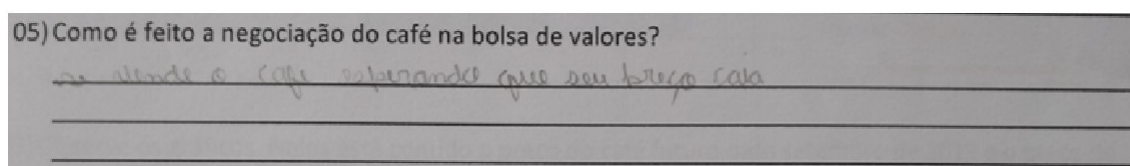 05) Como é feito a negociação do café na bolsa de valores?
se vende o café esperando que seu preço caia